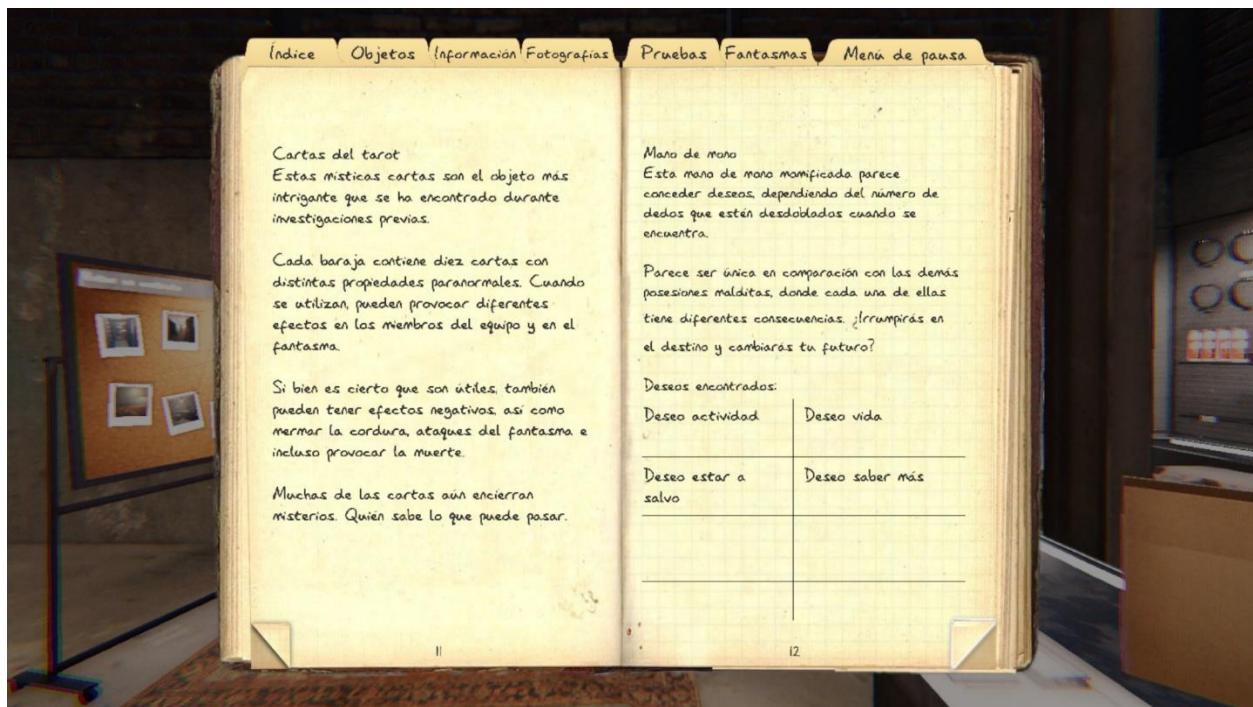 Índice
Objetos
Información
Fotografías
Pruebas
Fantasmas
Menú de pausa
Cartas del tarot
Estas místicas cartas son el objeto más
intrigante que se ha encontrado durante
investigaciones previas.
Cada baraja contiene diez cartas con
distintas propiedades paranormales. Cuando
se utilizan, pueden provocar diferentes
efectos en los miembros del equipo y en el
fantasma.
Si bien es cierto que son útiles, también
pueden tener efectos negativos, así como
mermar la cordura, ataques del fantasma e
incluso provocar la muerte.
Muchas de las cartas aún encierran
misterios. Quién sabe lo que puede pasar.
11
Mano de mono
Esta mano de mono momificada parece
conceder deseos, dependiendo del número de
dedos que estén desdoblados cuando se
encuentra.
Parece ser única en comparación con las demás
posesiones malditas, donde cada una de ellas
tiene diferentes consecuencias. ¿Irrumpirás en
el destino y cambiarás tu futuro?
Deseos encontrados:
Deseo actividad
Deseo vida
Deseo estar a
salvo
Deseo saber más
12